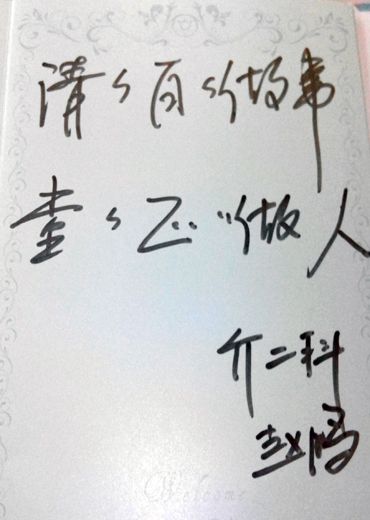 清々白々做事
堂々正々做人
介二科
赵
Welcome